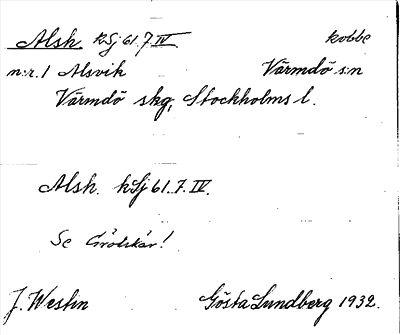 Alsk. kSj 61.7.IV kobbe
n:r.1 Alsvik Värmdö s:n
Värmdö skg, Stockholms l.
Alsk. kSj 61.7.IV.
Se !
J. Westin Gösta Lundberg 1932.